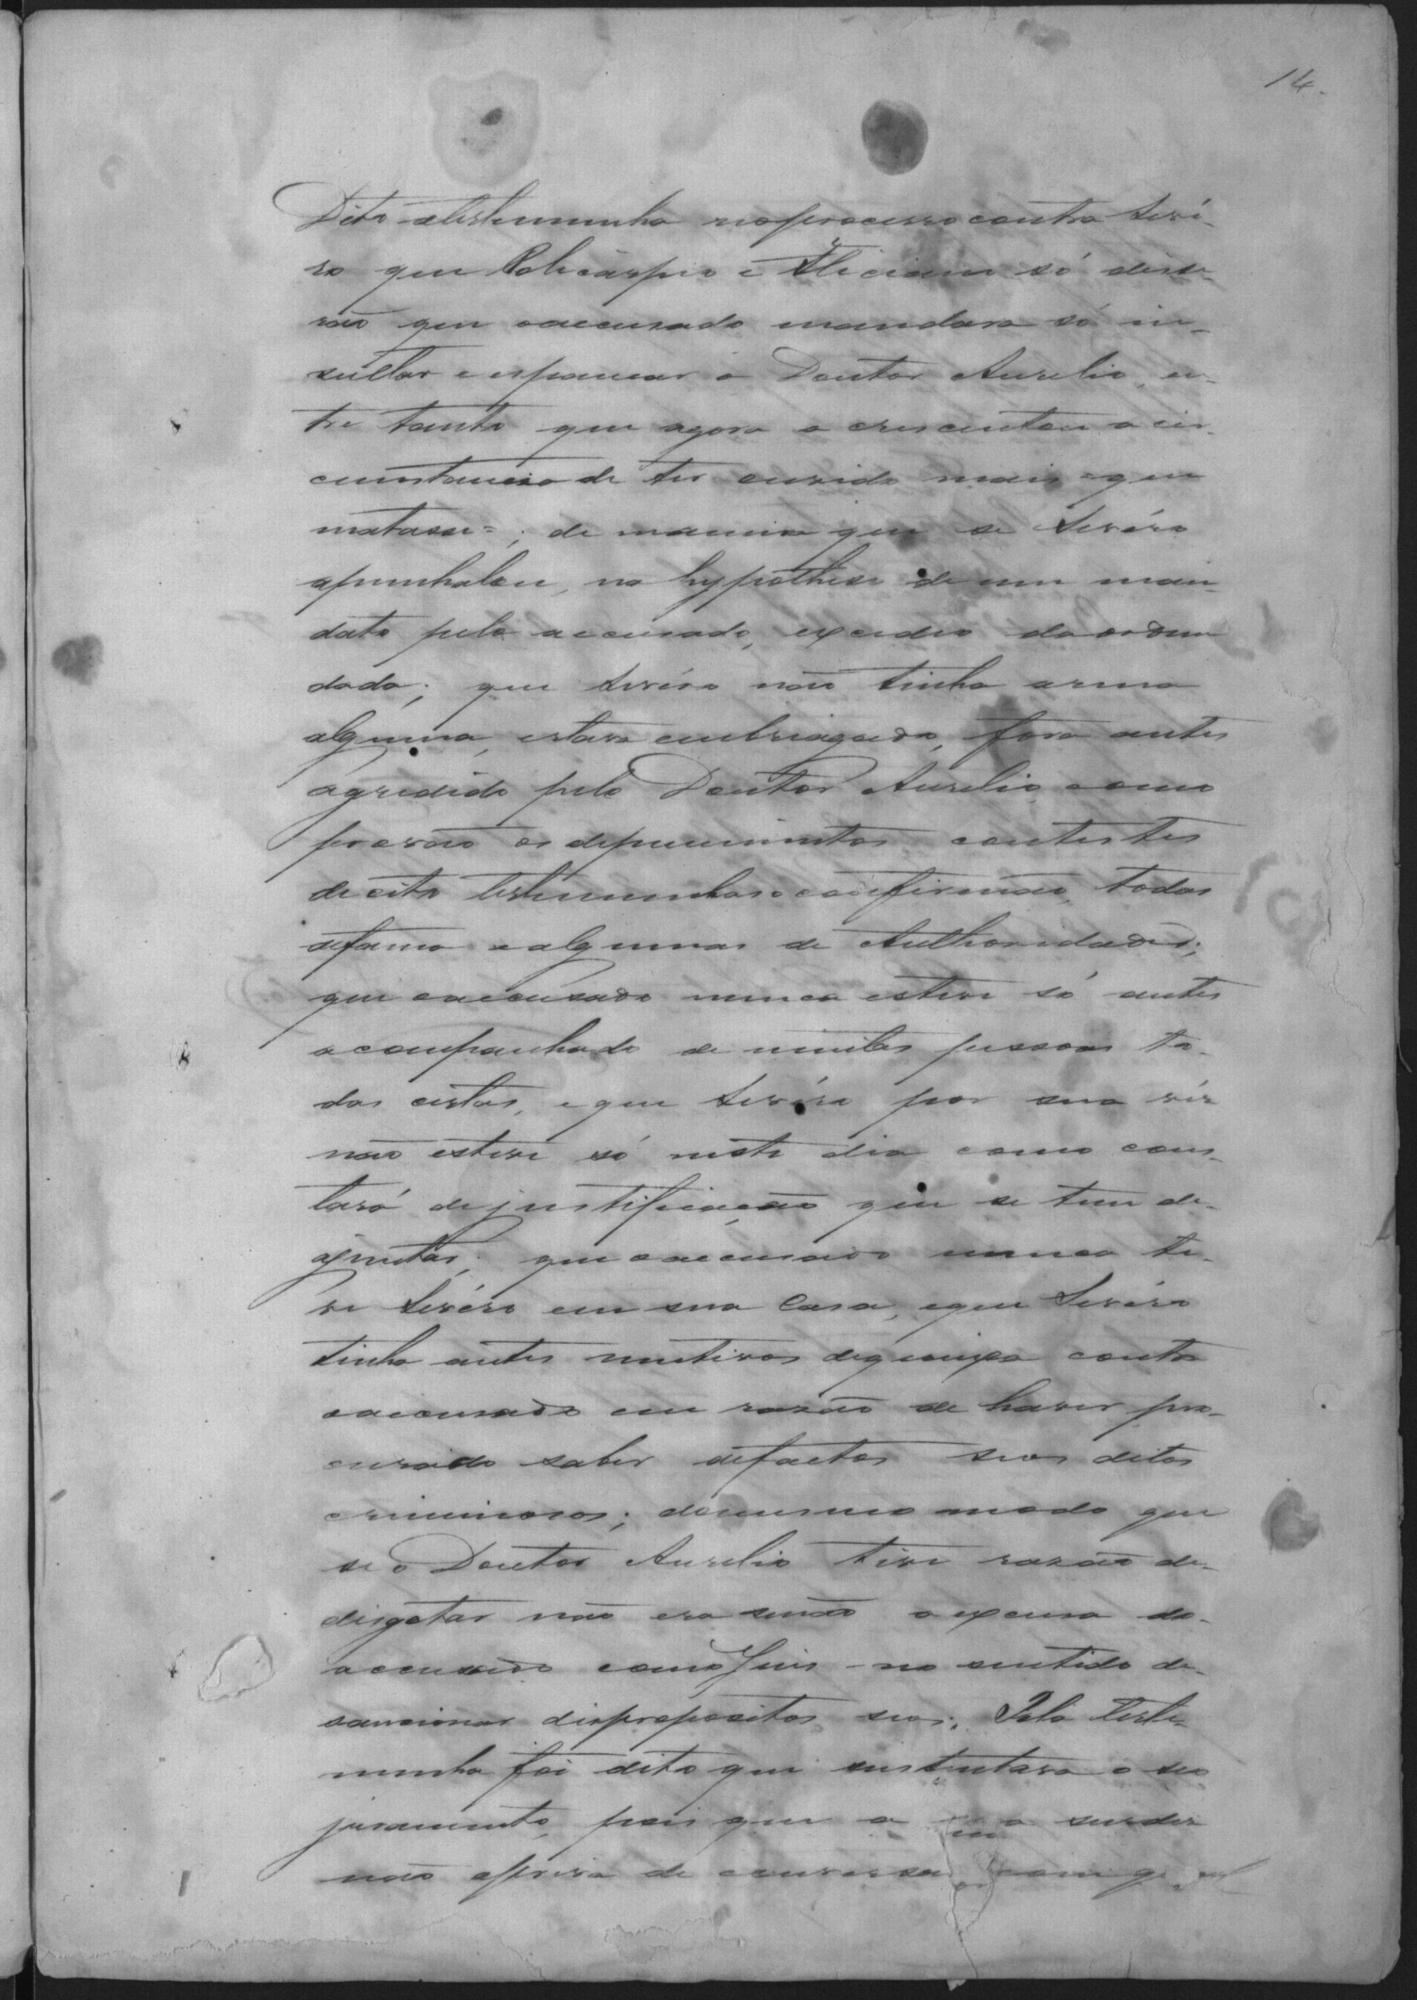 14.
Dito atestemunha no processo contra Sevé-
ro que Policárpio e Feliciano só disse-
rão que oaccusado mandara só in-
sultar e espancar o Doutor Aurelio, en-
tre tanto que agora a crescentou a cir-
cunstancia de ter ouvido mais =que
matasse=; de maneira que se Sevéro
apunhalou, na hypothese de um man-
dato pelo accusado, excedeo da ordem
dada; que Sevéro não tinha arma
alguma, estava embriagado, fora antes
agredido pelo Doutor Aurelio como
provão os depoimentos contestes
de oito testemunhas e confirmão, todas
defama e algumas de Authoridades;
que oaccusado nunca esteve só antes
acompanhado de muitas pessoas to-
das certas, e que Sevéro por sua vez
não esteve só neste dia como cons-
tará dejustificação que se tem de
ajuntar; que oaccusado nunca te-
ve Sevéro em sua Casa, eque Sevéro
tinha antes motivos dequeixa contra
oaccusado em razão de haver pro-
curado saber defactos seos ditos
criminosos; domesmo modo que
se o Doutor Aurelio teve razão de
disgotar não era senão a excusa do
accusado como Juis - no sentido de
sancionar dispropositos seos; Pela teste-
munha foi dito que sustentava o seo
juramento, pois que a suceder
não ouvira de conversa com